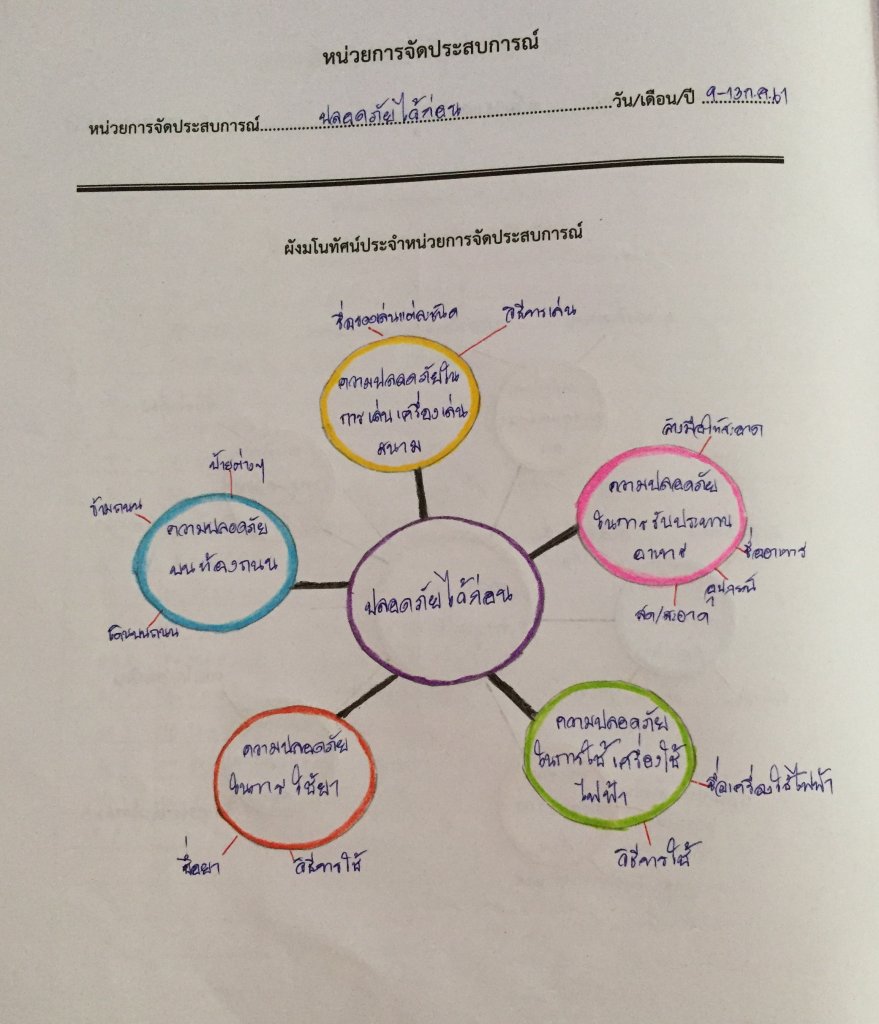 หน่วยการจัดประสบการณ์
หน่วยการจัดประสบการณ์ ปลอดภัยไว้ก่อน วัน/เดือน/ปี 9-13 ก.ค. 61
ผังมโนทัศน์ประจำหน่วยการจัดประสบการณ์
ชื่อของเล่นแต่ละชนิด
วิธีการเล่น
ความปลอดภัยใน
การเล่นเครื่องเล่น
สนาม
ล้างมือให้สะอาด
ความปลอดภัย
ในการรับประทาน
อาหาร
ชื่ออาหาร
อุปกรณ์
สด/สะอาด
ป้ายต่างๆ
ข้ามถนน
ความปลอดภัย
บนท้องถนน
เดินบนถนน
ปลอดภัยไว้ก่อน
ความปลอดภัย
ในการใช้ยา
ชื่อยา
วิธีการใช้
ความปลอดภัย
ในการใช้เครื่องใช้
ไฟฟ้า
ชื่อเครื่องใช้ไฟฟ้า
วิธีการใช้